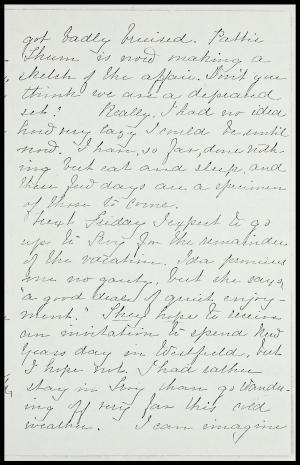 got badly bruised. Pattie
Thum is now making a
sketch of the affair. Don't you
think we are a depraved
set? Really, I had no idea
how very lazy I could be until
now. I have, so far, done noth-
ing but eat and sleep, and
these few days are a specimen
of those to come.
Next Friday I expect to go
up to Troy for the remainder
of the vacation. Ida promises
me no gaiety, but she says,
"a good deal of quiet enjoy-
ment." They hope to receive
an invitation to spend New
Years day in Westfield, but
I hope not. I had rather
stay in Troy than go wander-
ing off very far this cold
weather. I can imagine